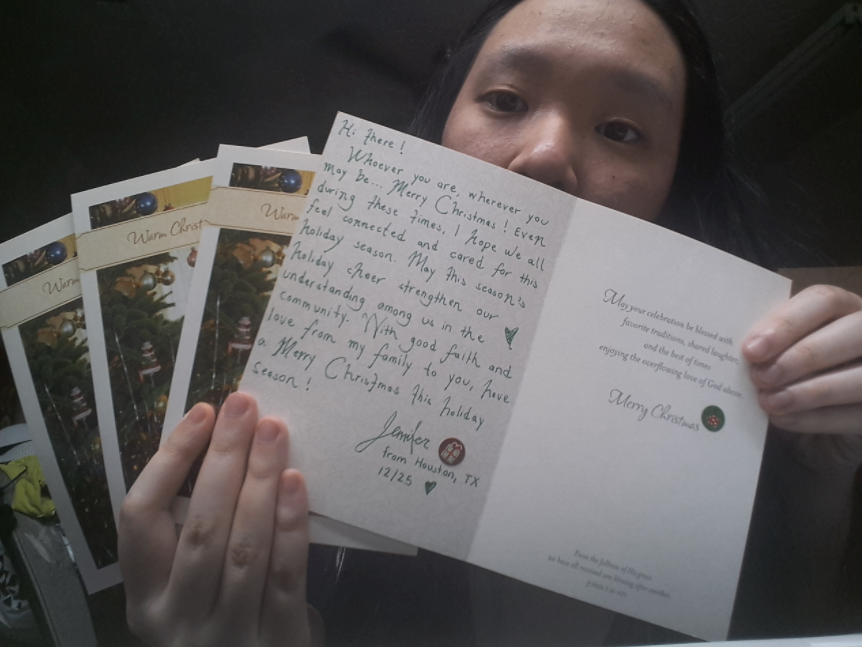 Hi there!
Whoever you are, wherever you
may be... Merry Christmas! Even
during these times, I hope we all
feel connected and cared for this
holiday season. May this season's
holiday cheer strengthen our
understanding among us in the
community. With good faith and
love from my family to you, have
a Merry Christmas this holiday
season!
Jennifer
from Houston, TX
12/25
May your celebration be blessed with
favorite traditions, shared laughter,
and the best of times
enjoying the overflowing love of God above.
Merry Christmas
From the fullness of His grace
we have all received one blessing after another.
Warm
Warm Christ
Warm